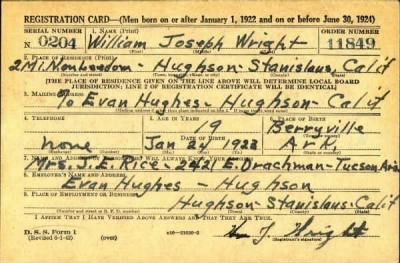 REGISTRATION CARD—(Men born on or after January 1, 1922 and on or before June 30, 1924)
SERIAL NUMBER 1. NAME (Print) ORDER NUMBER
N 0204 William Joseph Wright 11849
2. PLACE OF RESIDENCE (Print)
2 Mi. - Hughson - Stanislaus, Calif
[THE PLACE OF RESIDENCE GIVEN ON THE LINE ABOVE WILL DETERMINE LOCAL BOARD
JURISDICTION; LINE 2 OF REGISTRATION CERTIFICATE WILL BE IDENTICAL]
3. MAILING
To Evan Hughes - Hughson - Calif
4. TELEPHONE 5. AGE IN YEARS 6. PLACE OF BIRTH
19 Berryville
DATE OF BIRTH
none Jan 24 1923 Ark.
7. NAME AND ADDRESS OF PERSON WHO WILL ALWAYS KNOW YOUR ADDRESS
Mrs. J. E. Rice - 2421 E. Drachman - Tucson Ariz
8. EMPLOYER'S NAME AND ADDRESS
Evan Hughes - Hughson
9. PLACE OF EMPLOYMENT OR BUSINESS
Hughson - Stanislaus - Calif
I AFFIRM THAT I HAVE VERIFIED ABOVE ANSWERS AND THAT THEY ARE TRUE.
D. S. S. Form 1
(Revised 6-1-42) (over) Wm J. Wright
(Registrant's signature)